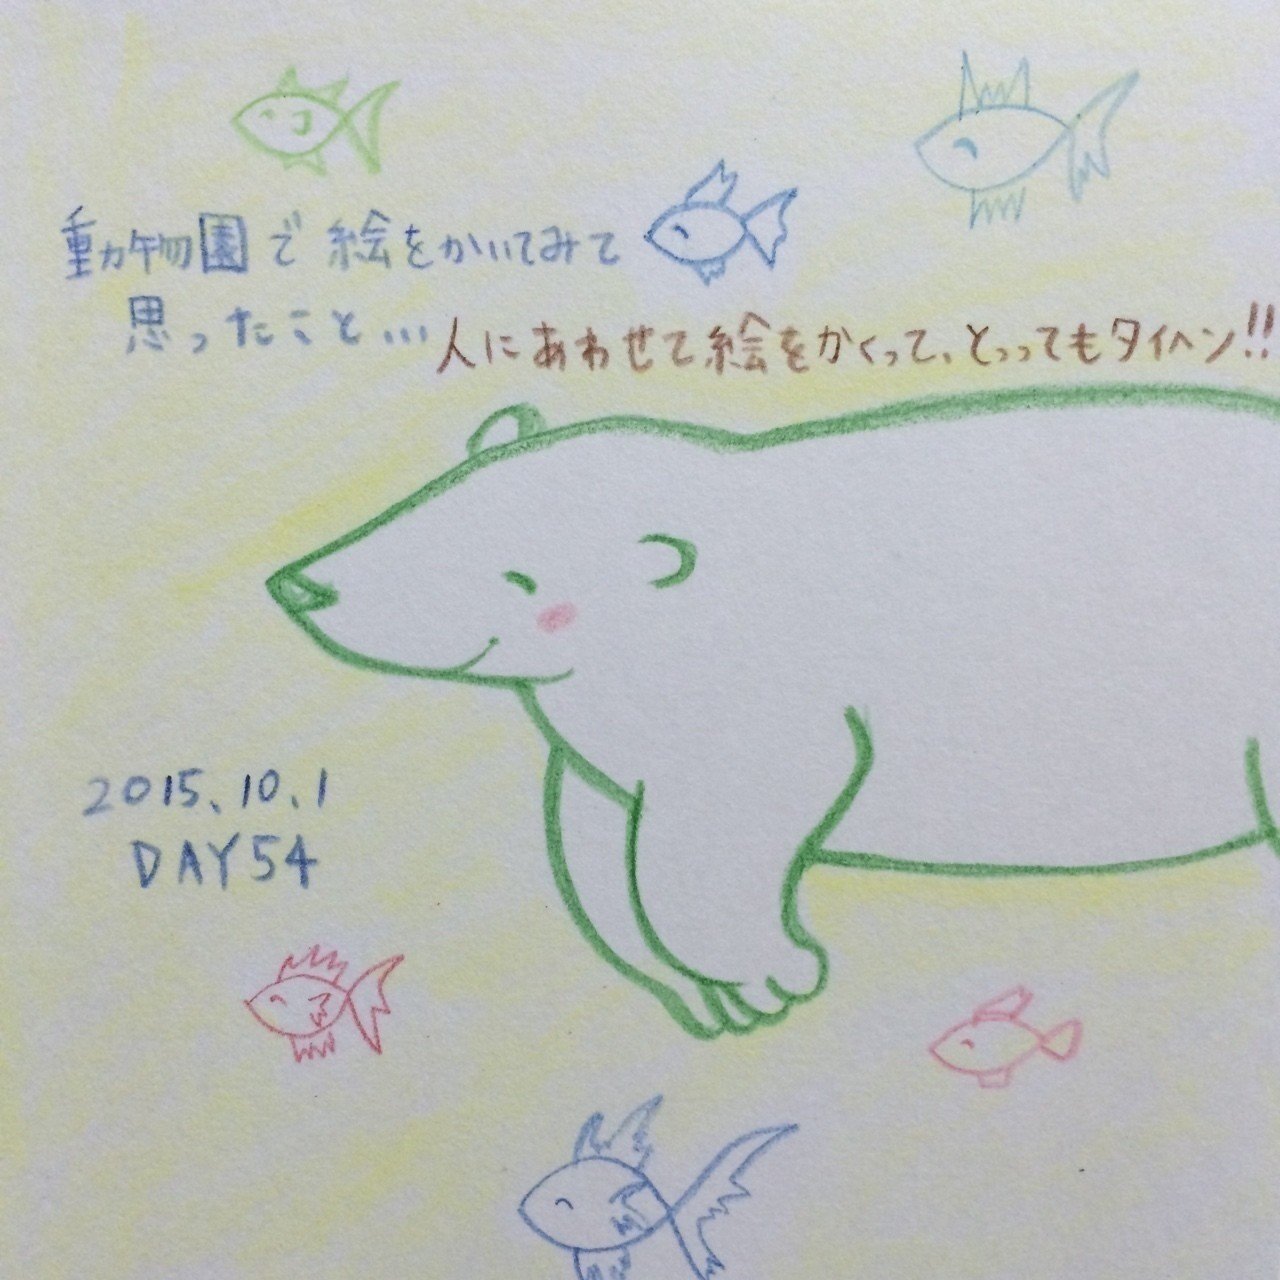 動物園で絵をかいてみて
思ったこと...
人にあわせて絵をかくって、とってもタイヘン!!
2015.10.1
DAY54